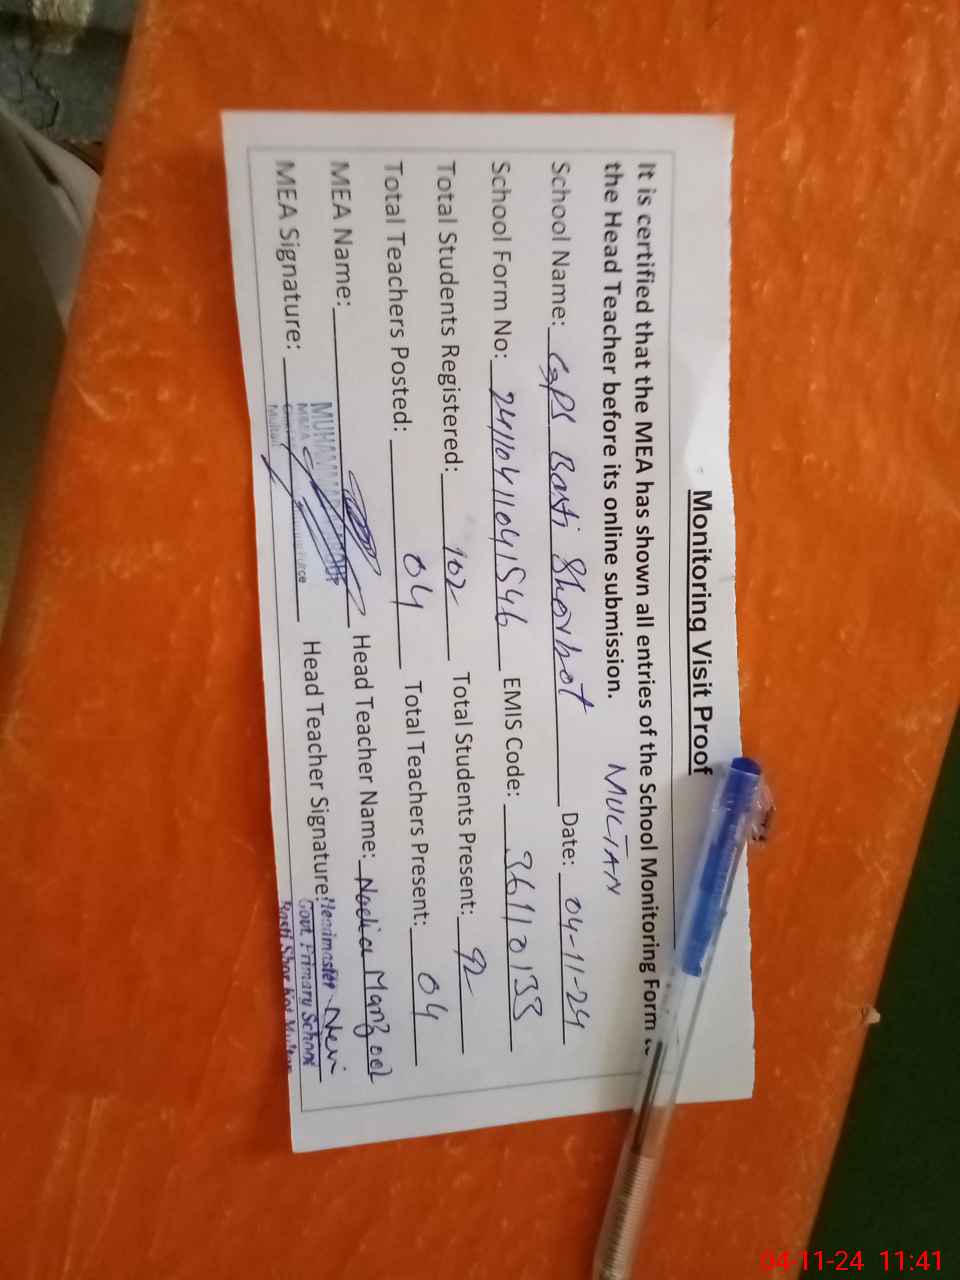 Monitoring Visit Proof
It is certified that the MEA has shown all entries of the School Monitoring Form
the Head Teacher before its online submission. MULTAN
School Name: GPS Basti Shorkot Date: 04-11-24
School Form No: EMIS Code: 36110133
Total Students Registered: 102 Total Students Present: 92
Total Teachers Posted: 04 Total Teachers Present: 04
MEA Name: MUHAMMAD Head Teacher Name: Nadia Manzool
MEA Signature: Head Teacher Signature: Headmaster
Multan
Govt. Primary School
Basti Shor Kot Multan
04-11-24 11:41